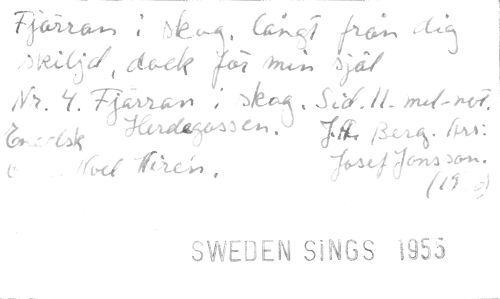 Fjärran i skog, långt från dig
skiljd, dock för min själ
Nr. 4. Fjärran i skog. Sid. 11. mel-not.
Herdegossen. J.A. Berg. Arr:
Noel Wirén. Josef Jonsson.
SWEDEN SINGS 1955